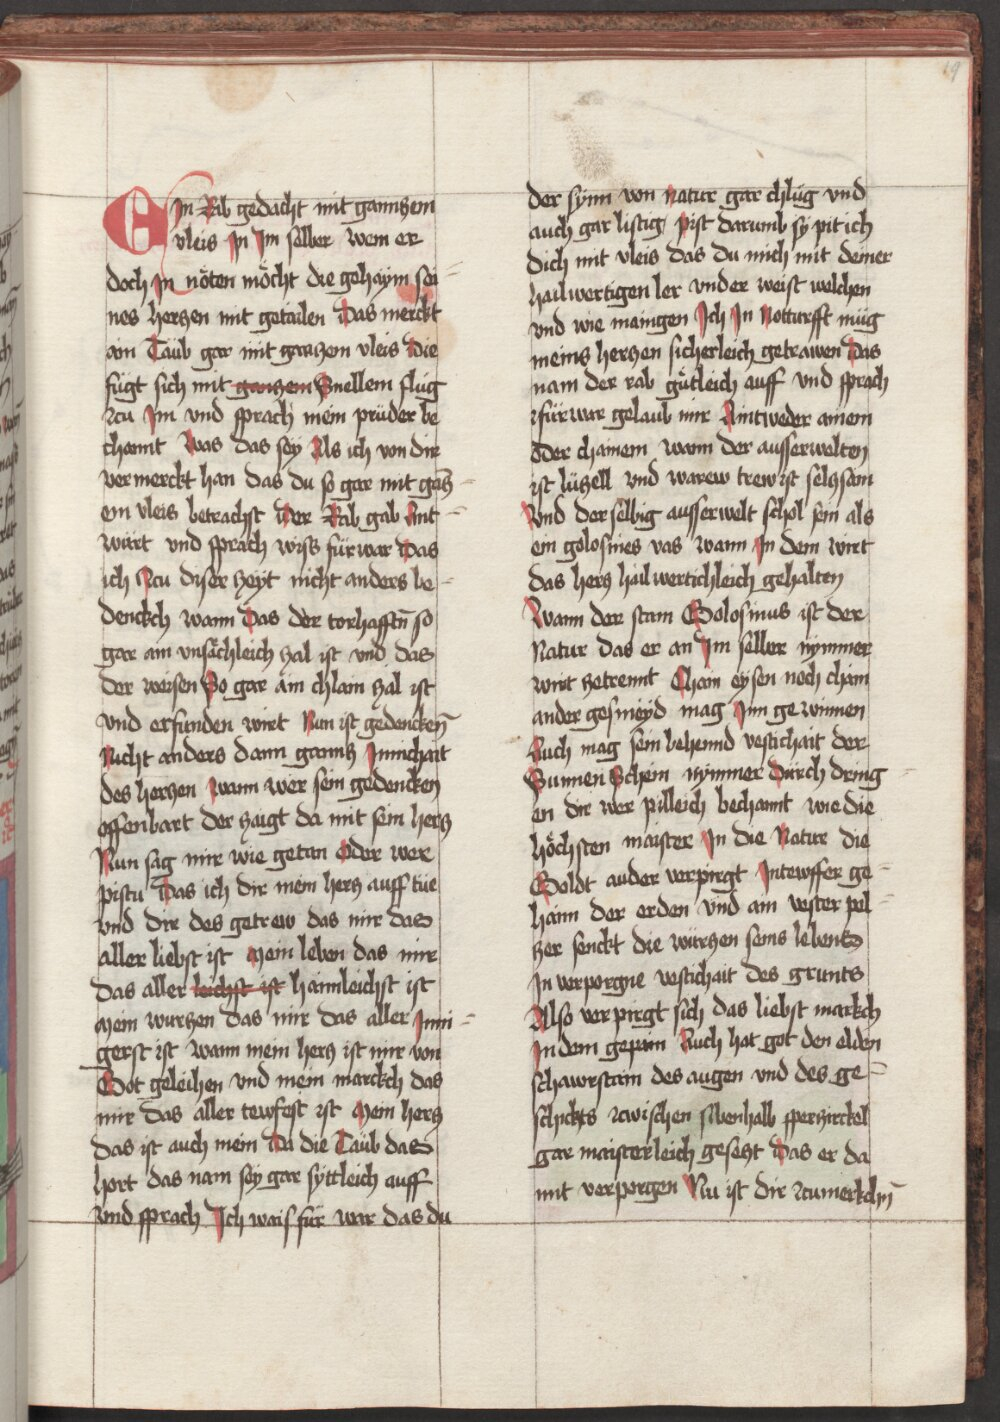 19
EIn Rab gedacht mit ganntzem
vleis In Im selber wem er
doch In nöten möcht die gehaym sei-
nes hertzen mit getailen Das merckt
ain Taub gar mit gantzem vleis Die
fugt sich mit gantzem Snellem flug
zcu Im vnd sprach mein prüder be
channt Was das sey Als ich von dir
vermerckt han das du so gar mit gãtz-
em vleis betrachst Der Rab gab Ant-
wurt vnd sprach wiss fürwar Das
ich zcu diser zeyt nicht anders be-
denckch wann Das der torhafftñ so
gar ain vnsächleich zal ist vnd das
der weisen So gar ain chlain zal ist
vnd erfunden wirt Nun ist gedenckeñ
Nicht anders dann gannts Innichait
des hertzen Wann wer sein gedencken
offenbart der zaigt da mit sein hertz
Nun sag mir wie getan Oder wer
pistu Das ich dir mein hertz auff tüe
vnd dir des getrew das mir das
aller liebst ist Mein leben das mir
das aller leichst ist haimleichst ist
Mein wurtzen das mir das aller Inni-
gerst ist wann mein hertz ist mir von
Got geleihen vnd mein marckch das
mir das aller tewfest ist Mein hertz
das ist auch mein Da die Taub das
hort das nam sey gar syttleich auff
vnd sprach Ich wais für war das du
der synn von Natur gar chlug vnd
auch gar listig pist darumb sy pit ich
dich mit vleis das du mich mit deiner
hailwertigen ler vnder weist welchen
vnd wie maingen Ich In Notturfft müg
meins hertzen sicherleich getrawen Das
nam der rab gütleich auff vnd sprach
fürwar gelaub mir Aintweder ainem
oder chainem wann der ausserwelten
ist lützell vnd warew trew ist seltzsam
Vnd derselbig ausserwelt schol sein als
ein golosines vas wann In dem wirt
das hertz hailwertichleich gehalten
Wann der stam Golosinus ist der
Natur das er an Im selber nymmer
wirt zetrennt Chain eysen noch chain
ander gesmeyd mag Inn gewinnen
Auch mag sein behennd vestichait der
Sunnen Schein nymmer Durch dring-
en dir wer pilleich bechannt wie die
höchsten maister In die Natur die
Goldt ander verpirgt Intewffer ge-
haim der erden vnd am vester pel-
tzer senckt die würtzen seins lebens
In verporgne vestichait des grunts
Also verpirgt sich das liebst markch
In dem gepain Auch hat got den elden
schawrstain des augen vnd des ge-
schickts zwischen sibenhalb sperzirckel
gar maisterleich gesetzt Das er da
mit verporgen Nu ist dir zcumerckchñ